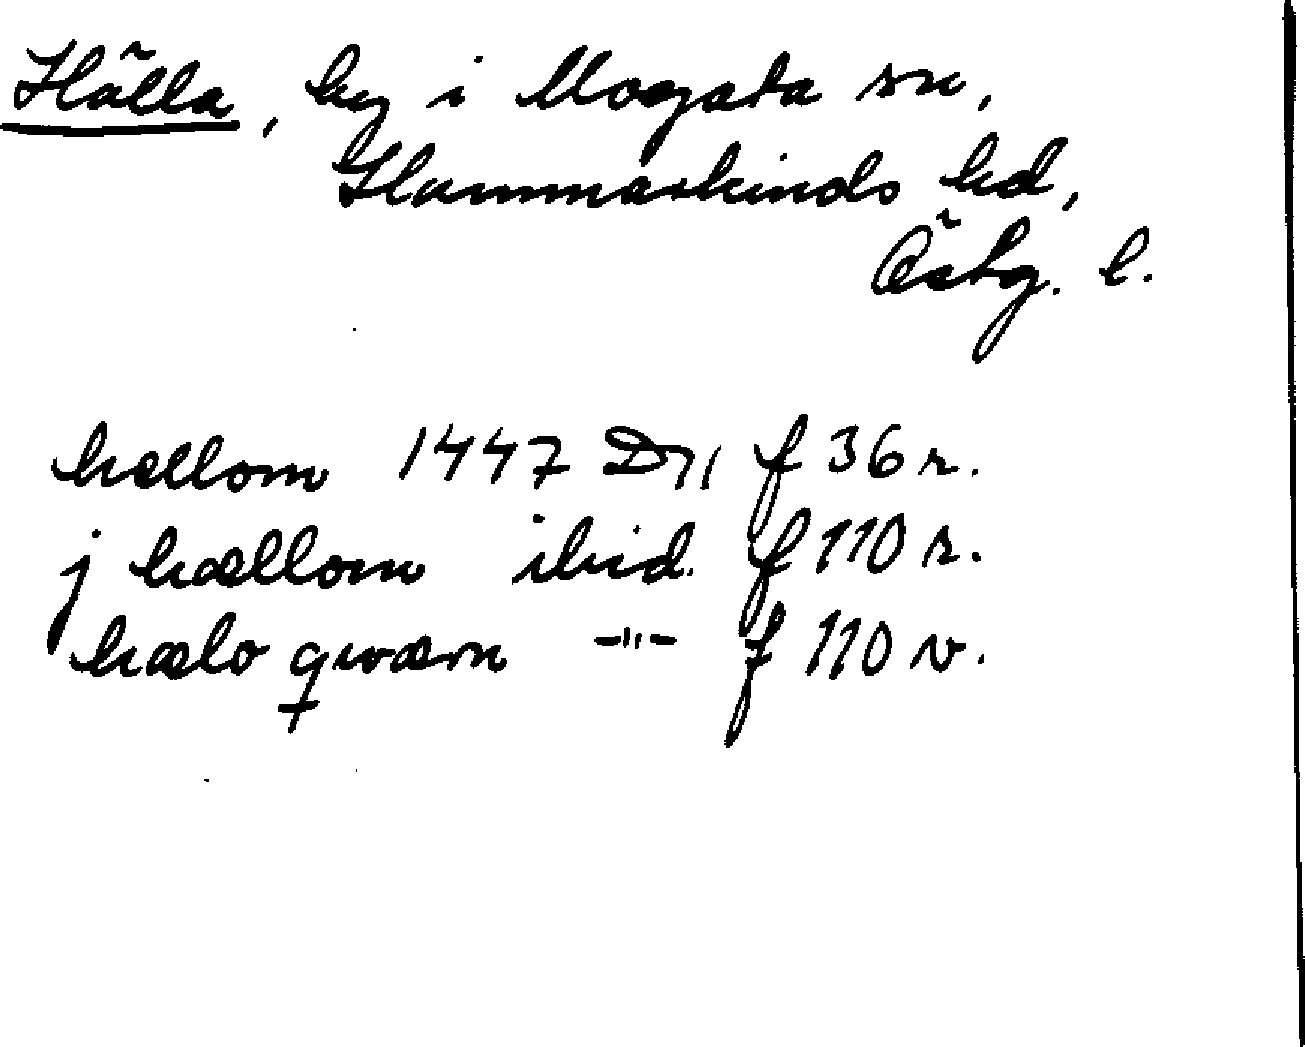 Hälla, by i Mogata sn,
Hammarkinds hd,
Östg. l.
hællom 1447 D 11 f 36 r.
j hællom ibid. f 110 r.
hælo qwærn -"- f 110 v.